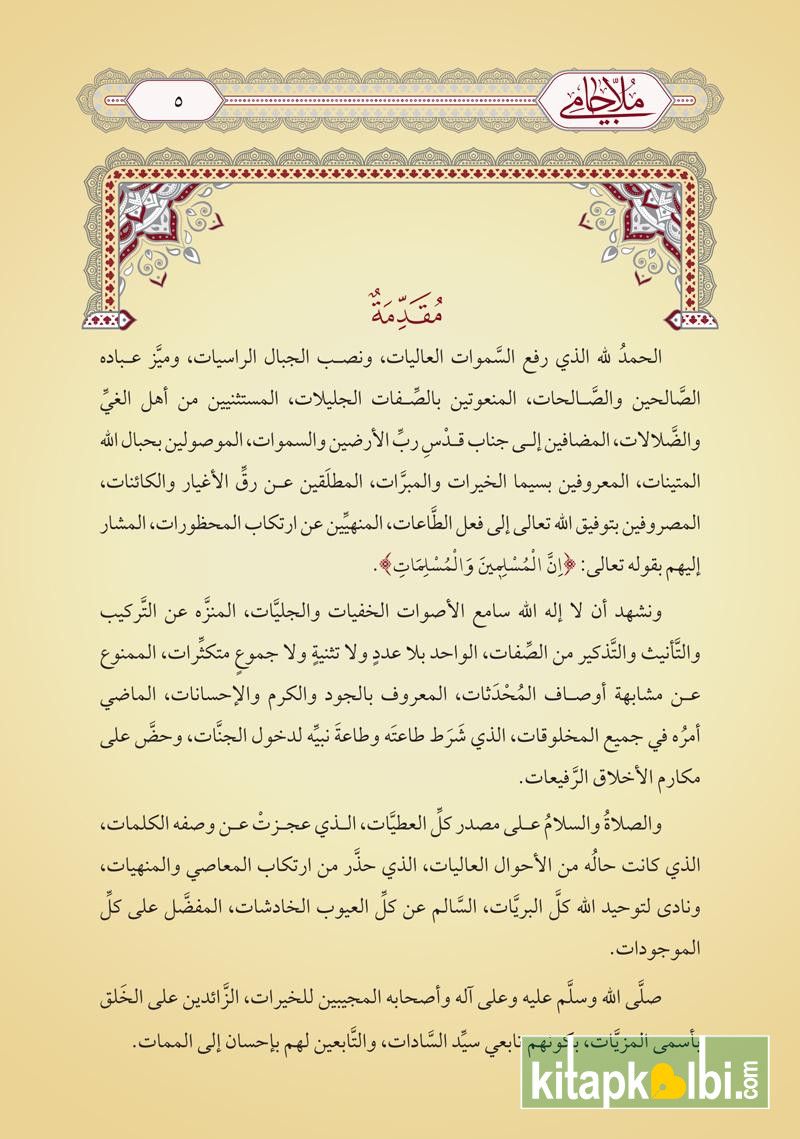 مُلَّا جَامي
٥
مُقَدِّمَةٌ
الحمدُ لله الذي رفع السَّموات العاليات، ونصب الجبال الراسيات، وميَّز عباده
الصَّالحين والصَّالحات، المنعوتين بالصِّفات الجليلات، المستثنيين من أهل الغيِّ
والضَّلالات، المضافين إلى جناب قدْسِ ربِّ الأرضين والسموات، الموصولين بحبال الله
المتينات، المعروفين بسيما الخيرات والمبرَّات، المطلَقين عن رقِّ الأغيار والكائنات،
المصروفين بتوفيق الله تعالى إلى فعل الطَّاعات، المنهيِّين عن ارتكاب المحظورات، المشار
إليهم بقوله تعالى: ﴿اِنَّ الْمُسْلِمٖينَ وَالْمُسْلِمَاتِ﴾.
ونشهد أن لا إله الله سامع الأصوات الخفيات والجليَّات، المنزَّه عن التَّركيب
والتَّأنيث والتَّذكير من الصِّفات، الواحد بلا عددٍ ولا تثنيةٍ ولا جموعٍ متكثِّرات، الممنوع
عن مشابهة أوصاف المُحْدَثات، المعروف بالجود والكرم والإحسانات، الماضي
أمرُه في جميع المخلوقات، الذي شَرَط طاعتَه وطاعةَ نبيِّه لدخول الجنَّات، وحضَّ على
مكارم الأخلاق الرَّفيعات.
والصلاةُ والسلامُ على مصدر كلِّ العطيَّات، الذي عجزتْ عن وصفه الكلمات،
الذي كانت حالُه من الأحوال العاليات، الذي حذَّر من ارتكاب المعاصي والمنهيات،
ونادى لتوحيد الله كلَّ البريَّات، السَّالم عن كلِّ العيوب الخادشات، المفضَّل على كلِّ
الموجودات.
صلَّى الله وسلَّم عليه وعلى آله وأصحابه المجيبين للخيرات، الزَّائدين على الخَلق
بأسمى المزيَّات، بكونهم تابعي سيِّد السَّادات، والتَّابعين لهم بإحسان إلى الممات.
kitapkalbi.com